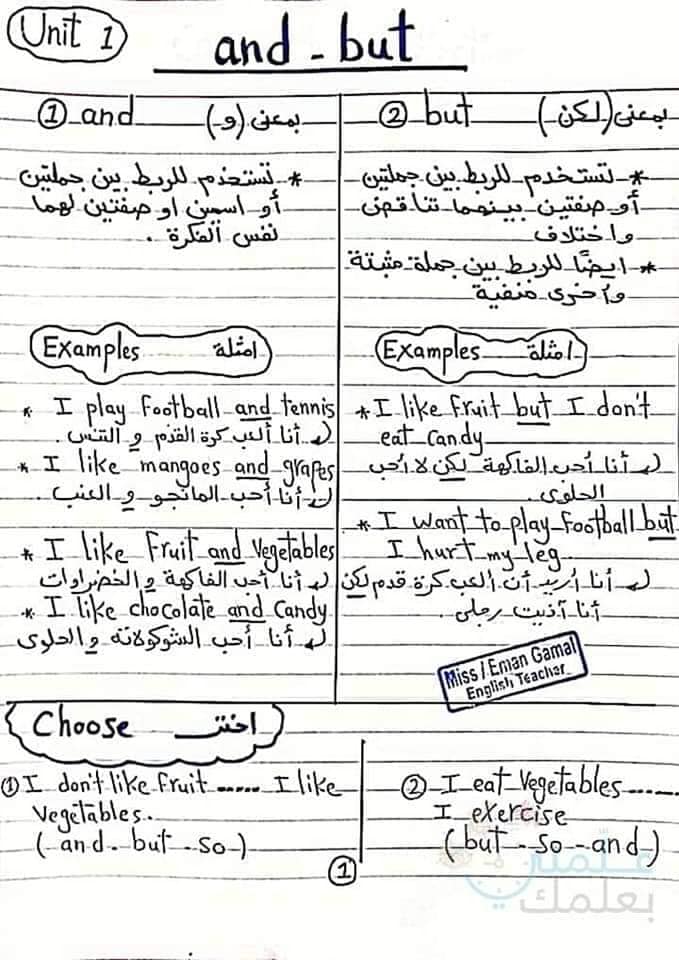 Unit 1
and - but
① and بمعنى (و)
* تستخدم للربط بين جملتين
أو اسمين او صفتين لهما
نفس الفكرة .
Examples امثلة
* I play football and tennis
أنا ألعب كرة القدم و التنس .
* I like mangoes and grapes
أنا أحب المانجو و العنب .
* I like fruit and vegetables
أنا أحب الفاكهة و الخضراوات
* I like chocolate and candy
أنا أحب الشوكولاتة و الحلوى
② but بمعنى (لكن)
* تستخدم للربط بين جملتين
أو صفتين بينهما تناقض
واختلاف
* ايضًا للربط بين جملة مثبتة
وأخرى منفية
Examples امثلة
* I like fruit but I don't
eat candy
أنا أحب الفاكهة لكن لا أحب
الحلوى .
* I want to play football but
I hurt my leg
أنا أريد أن ألعب كرة قدم لكن
أنا آذيت رجلى .
Miss / Eman Gamal
English Teacher
Choose اختر
① I don't like fruit ...... I like
vegetables.
( and - but - so )
② I eat vegetables ......
I exercise
(but - so - and)
①
علّمني
بعلمك